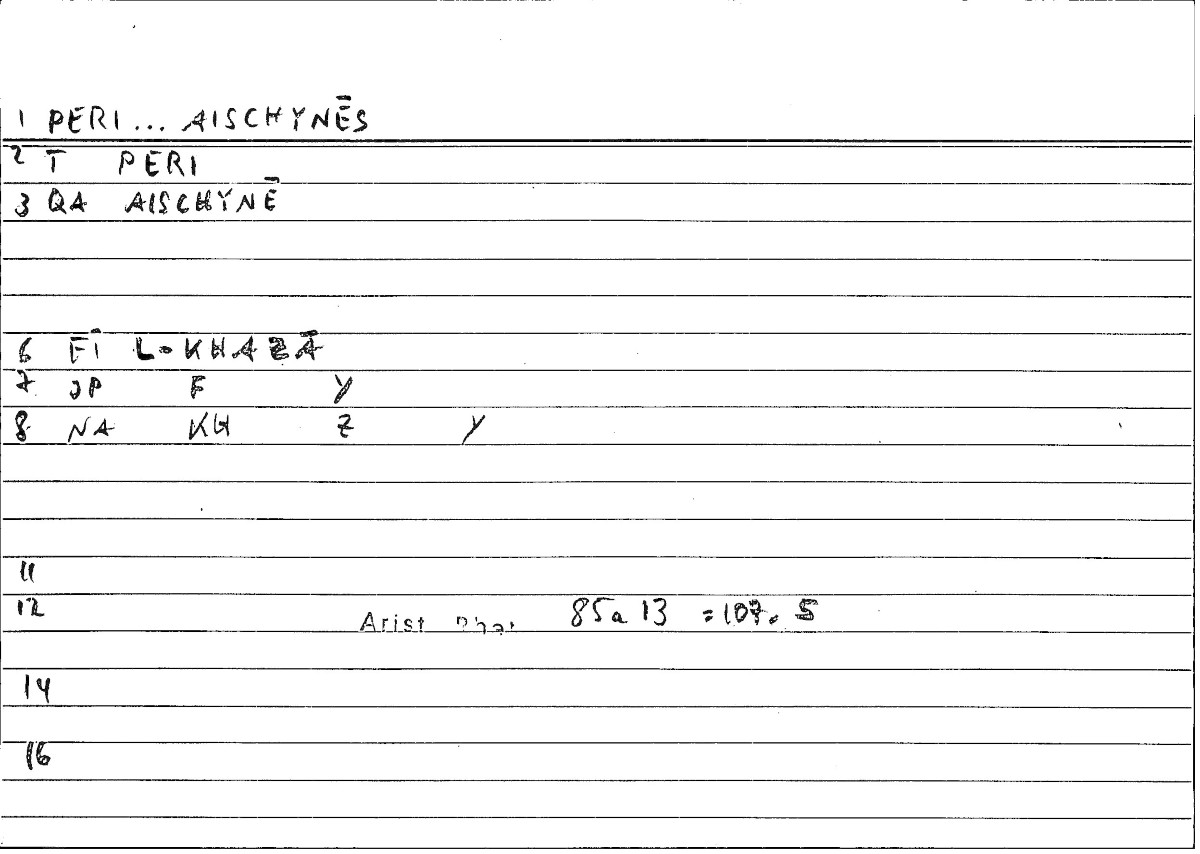 1 PERI... AISCHYNĒS
2 T PERI
3 QA AISCHYNĒ
6 FĪ L-KHAZĀ
7 JP F Y
8 NA KH Z Y
11
12 Arist 85a 13 =107. 5
14
16